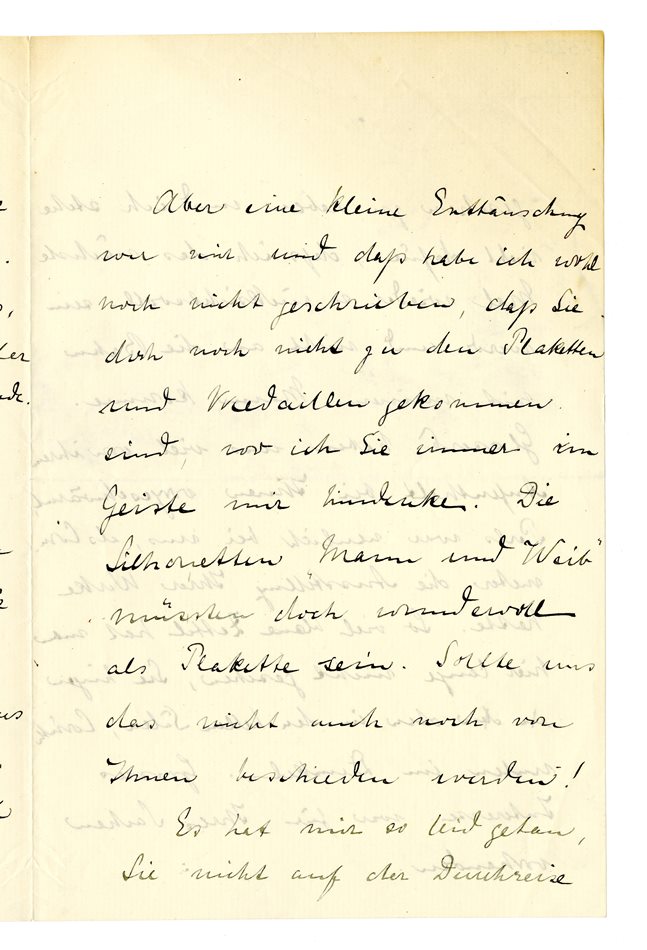 Aber eine kleine Enttäuschung
war mir und daß habe ich wohl
noch nicht geschrieben, daß Sie
doch noch nicht zu den Plaketten
und Medaillen gekommen
sind, wo ich Sie immer im
Geiste mir hindenke. Die
Silhouetten "Mann und Weib"
müssten doch wundervoll
als Plakette sein. Sollte uns
das nicht auch noch von
Ihnen beschieden werden!
Es hat mir so leid getan,
Sie nicht auf der Durchreise